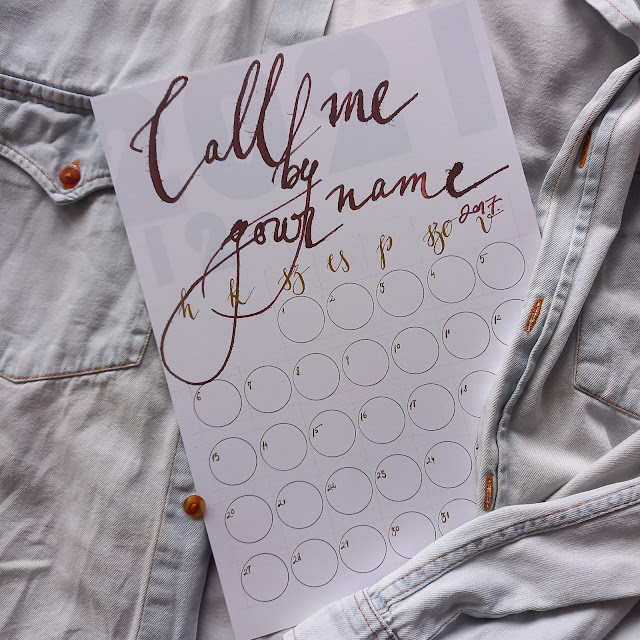 2021
12
Call me
by
your name
2017
h k sz cs p szo v
1 2 3 4 5
6 7 8 9 10 11 12
13 14 15 16 17
20 21 22 23 24
27 28 29 30 31